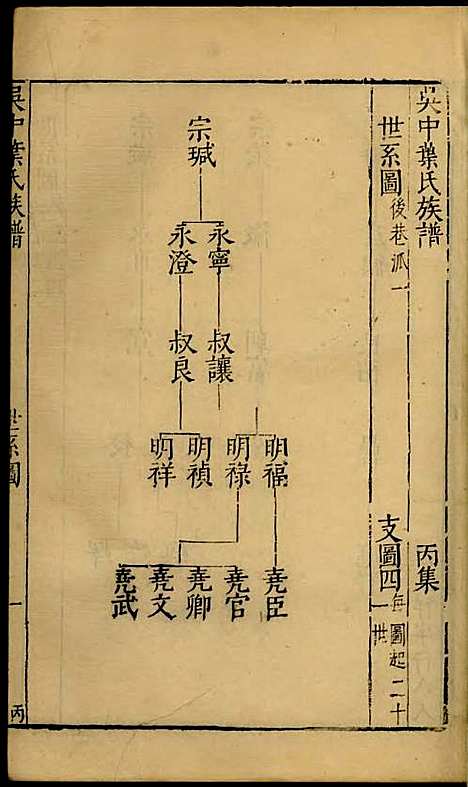 吳中葉氏族譜 丙集
世系圖 後巷派一 支圖四 每圖起二十一世
宗瑊
永寧 永澄
叔讓 叔良
明福 明祿 明禎 明祥
堯臣 堯官 堯卿 堯文 堯武
吳中葉氏族譜 世系圖 一 丙